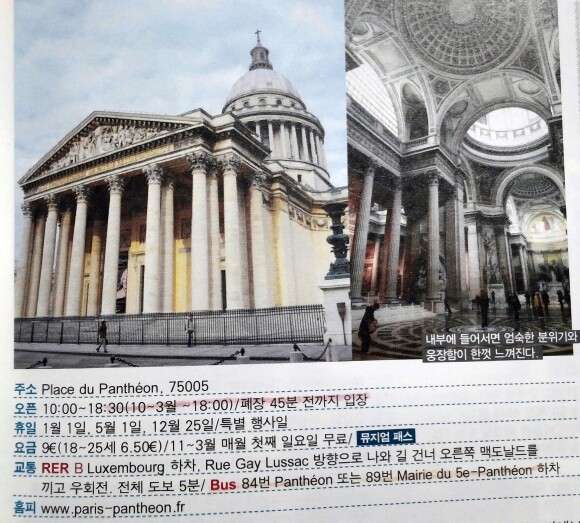 내부에 들어서면 엄숙한 분위기와
웅장함이 한껏 느껴진다.
주소 Place du Panthéon, 75005
오픈 10:00~18:30(10~3월 ~18:00)/폐장 45분 전까지 입장
휴일 1월 1일, 5월 1일, 12월 25일/특별 행사일
요금 9€(18~25세 6.50€)/11~3월 매월 첫째 일요일 무료/ 뮤지엄 패스
교통 RER B Luxembourg 하차, Rue Gay Lussac 방향으로 나와 길 건너 오른쪽 맥도날드를
끼고 우회전. 전체 도보 5분/ Bus 84번 Panthéon 또는 89번 Mairie du 5e-Panthéon 하차
홈피 www.paris-pantheon.fr